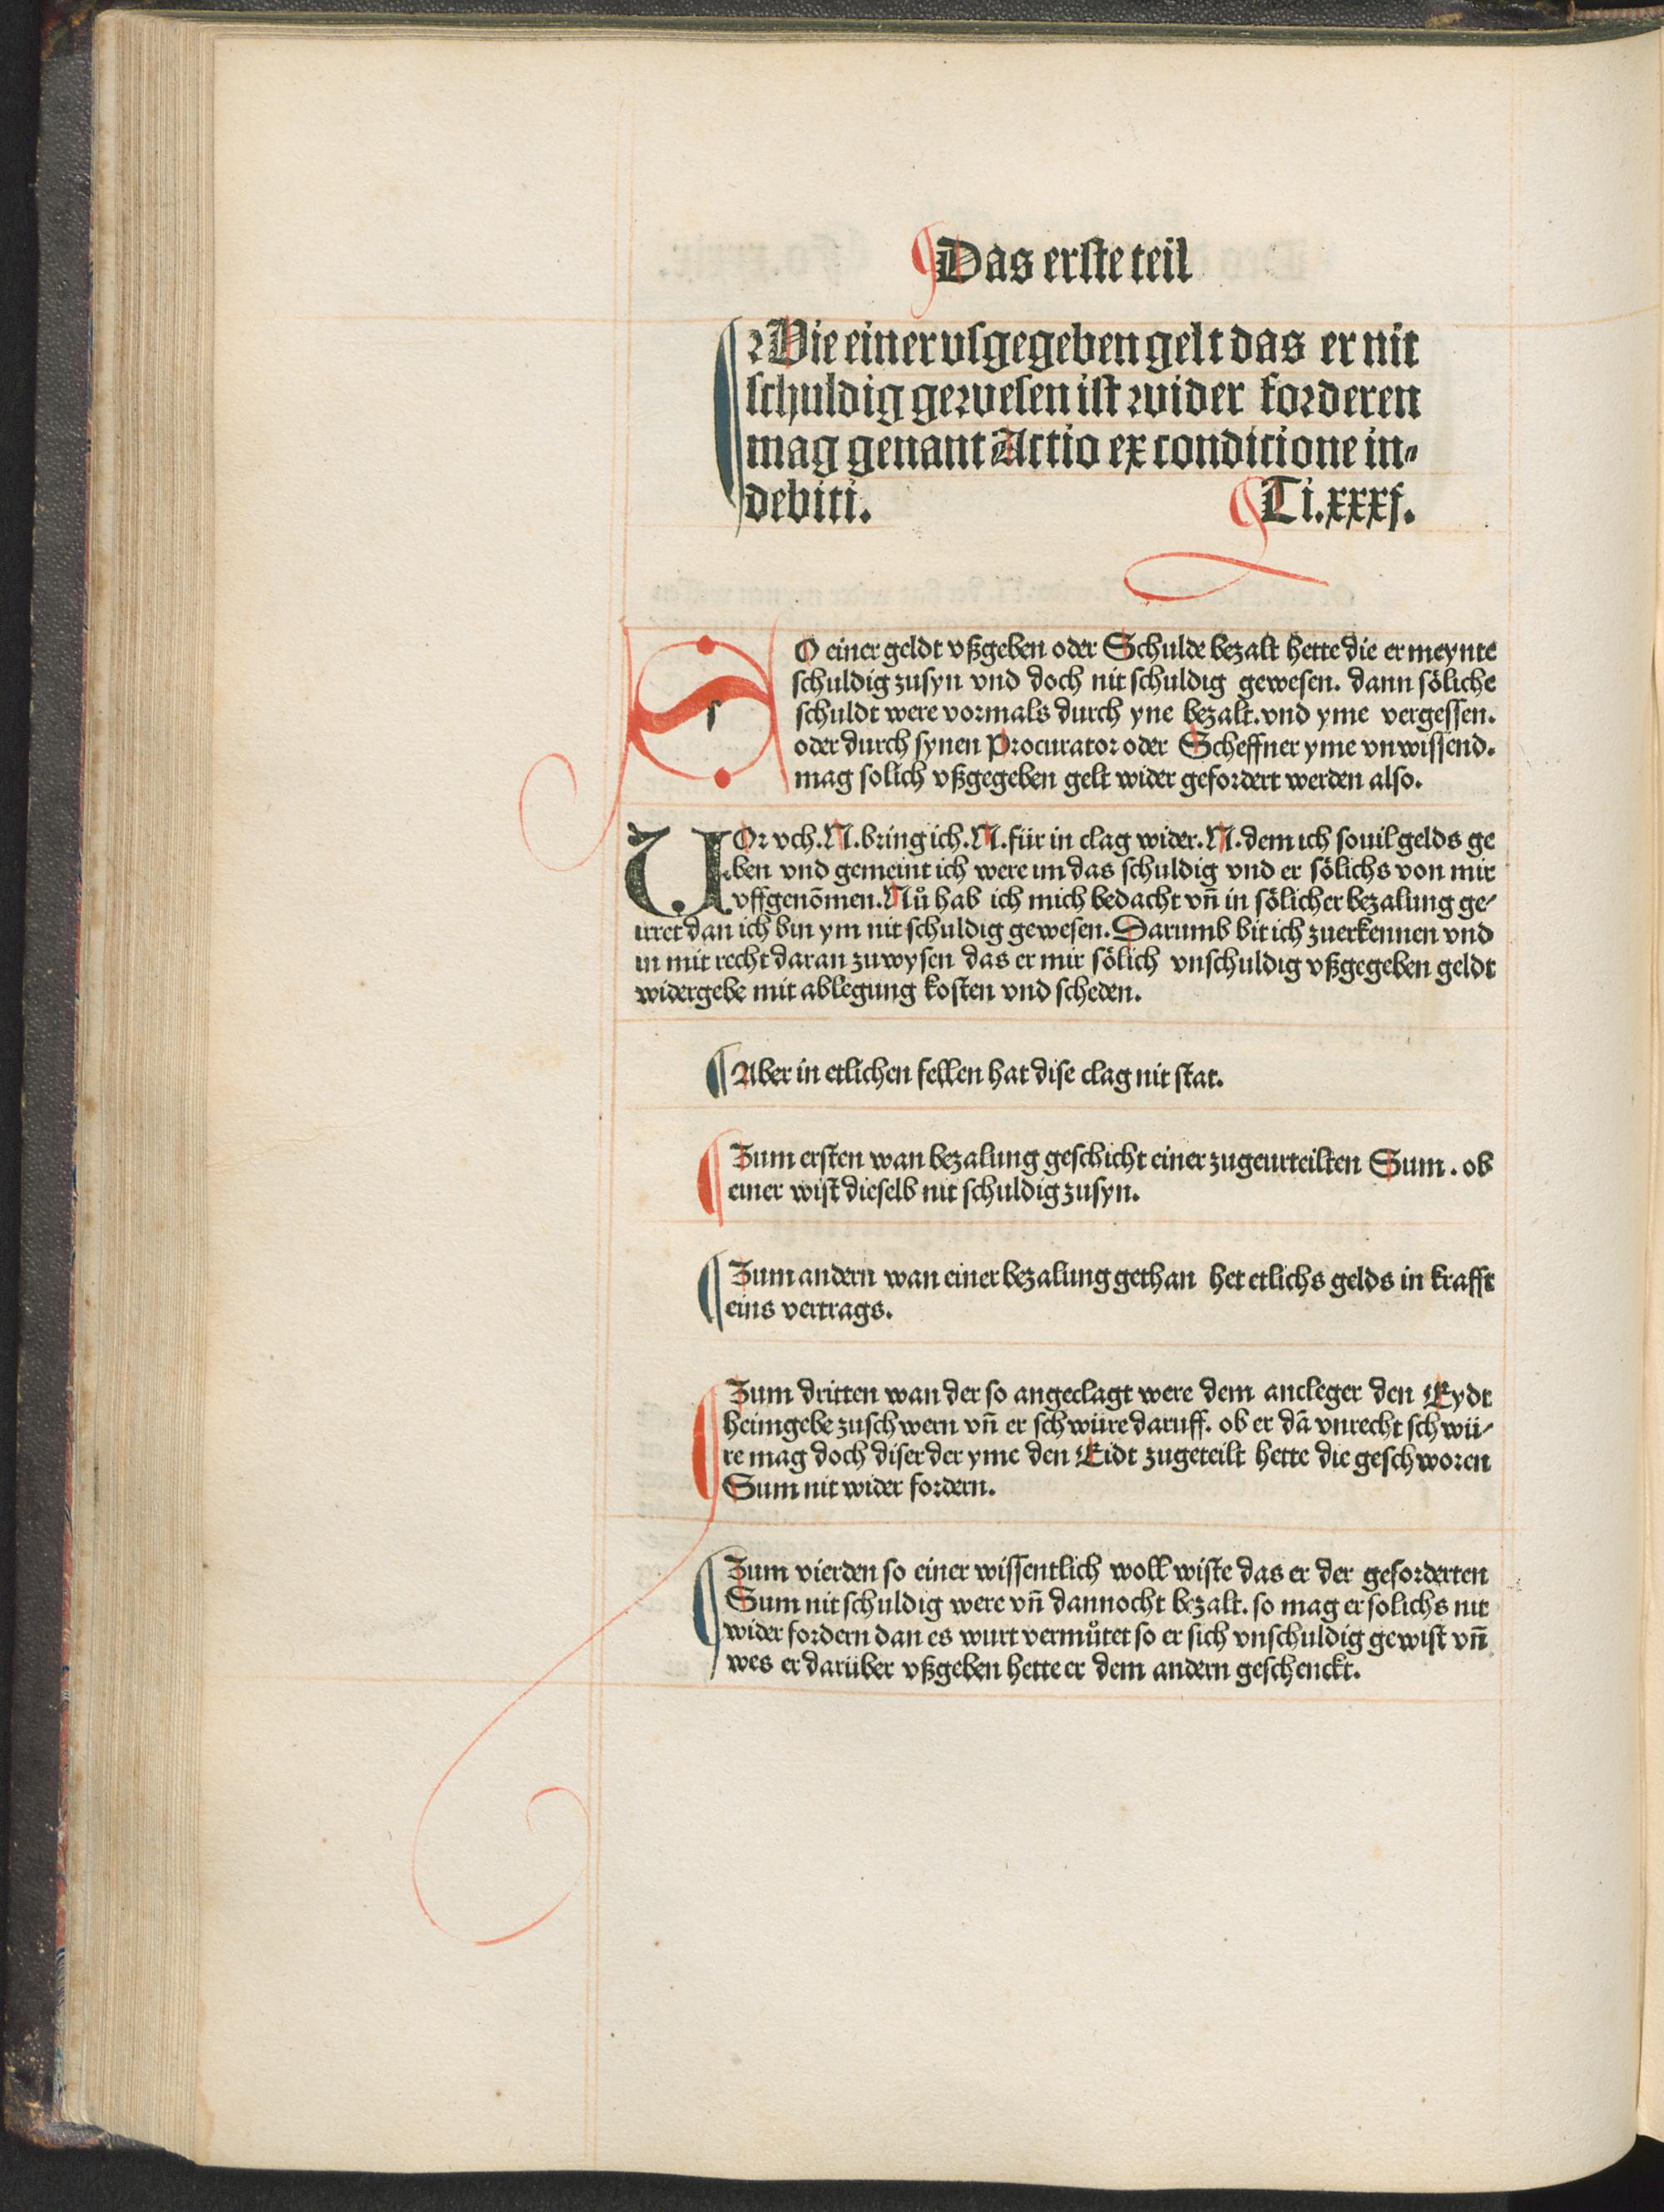 Das erste teil
Wie einer vsgegeben gelt das er nit
schuldig gewesen ist wider forderen
mag genant Actio ex conditione in⸗
debiti. Ti. xxxj.
SO einer geldt vßgeben oder Schulde bezalt hette die er meynte
schuldig zusyn vnd doch nit schuldig gewesen. dann söliche
schuldt were vormals durch yne bezalt. vnd yme vergessen.
oder durch synen Procurator oder Scheffner yme vnwissend.
mag solich vßgegeben gelt wider gefordert werden also.
VOr vch. N. bring ich. N. für in clag wider. N. dem ich souil gelds ge
ben vnd gemeint ich were im das schuldig vnd er sölichs von mir
vffgenōmen. Nů hab ich mich bedacht vn̄ in sölicher bezalung ge⸗
irret dan ich bin ym nit schuldig gewesen. Darumb bit ich zuerkennen vnd
in mit recht daran zuwysen das er mir sölich vnschuldig vßgegeben geldt
widergebe mit ablegung kosten vnd scheden.
Aber in etlichen fellen hat dise clag nit stat.
Zum ersten wan bezalung geschicht einer zugeurteilten Sum. ob
einer wist dieselb nit schuldig zusyn.
Zum andern wan einer bezalung gethan het etlichs gelds in krafft
eins vertrags.
Zum dritten wan der so angeclagt were dem ancleger den Eydt
heimgebe zuschwern vn̄ er schwüre daruff. ob er dā vnrecht schwü⸗
re mag doch diser der yme den Eidt zugeteilt hette die geschworen
Sum nit wider fordern.
Zum vierden so einer wissentlich woll wiste das er der geforderten
Sum nit schuldig were vn̄ dannocht bezalt. so mag er solichs nit
wider fordern dan es wurt vermůtet so er sich vnschuldig gewist vn̄
wes er darüber vßgeben hette er dem andern geschenckt.